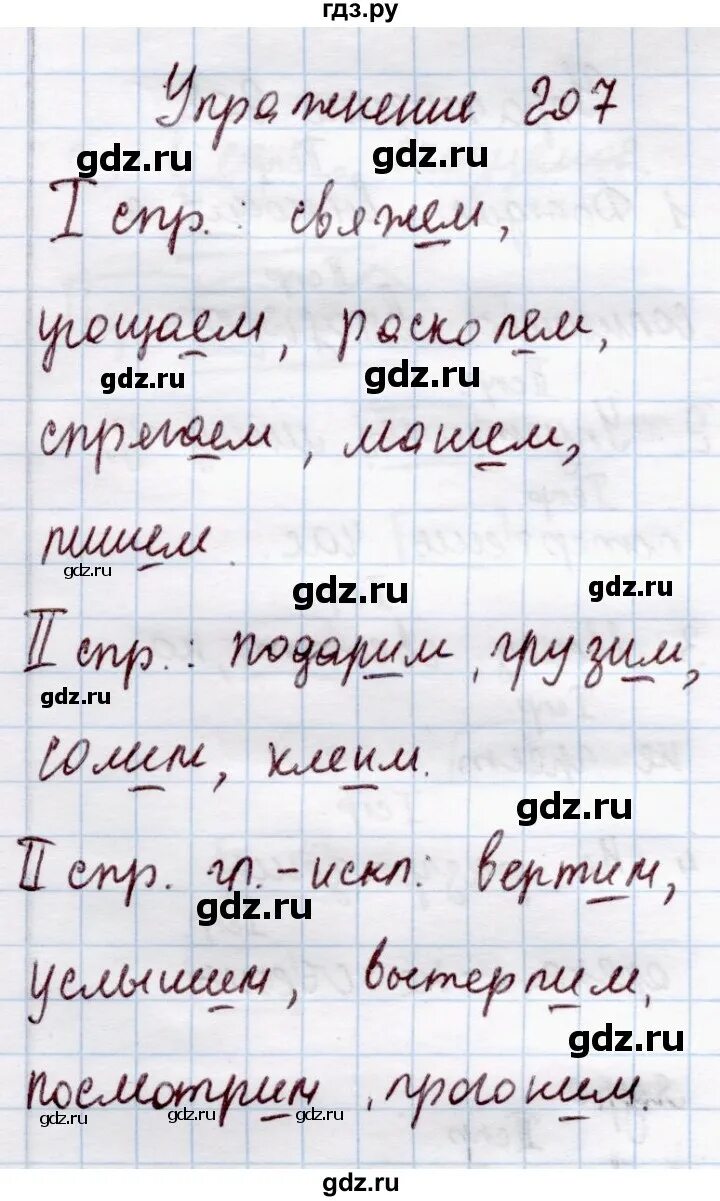 гдз.ру
Упражнение 207
gdz.ru gdz.ru
I спр.: свяжем,
угощаем, расколем,
gdz.ru gdz.ru
спрягаем, машем,
пишем.
gdz.ru gdz.ru gdz.ru
II спр.: подарим, грузим,
gdz.ru
солим, клеим.
gdz.ru
II спр. гл.-искл: вертим,
gdz.ru
услышим, вытерпим,
gdz.ru
посмотрим, прогоним.
gdz.ru gdz.ru gdz.ru gdz.ru
gdz.ru